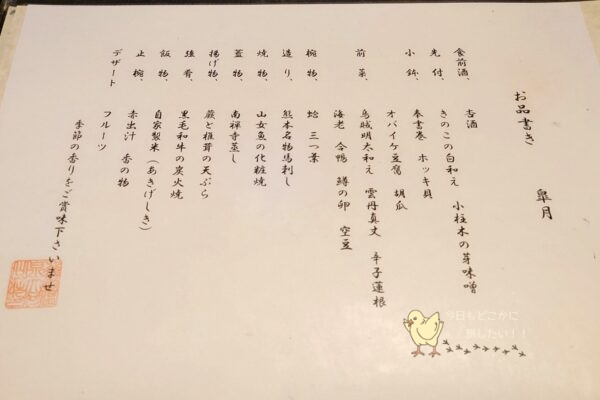 お品書き 皐月
食前酒、 杏酒
先付、 きのこの白和え 小柱木の芽味噌
小鉢、 奉書巻 ホッキ貝
オバイケ豆腐 胡瓜
前菜、 烏賊明太和え 雲丹真丈 辛子蓮根
海老 合鴨 鱒の卵 空豆
椀物、 蛤 三つ葉
造り、 熊本名物馬刺し
焼物、 山女魚の化粧焼
蓋物、 南禅寺蒸し
揚げ物、 蕨と椎茸の天ぷら
強肴、 黒毛和牛の炭火焼
飯物、 自家製米(あきげしき)
止椀、 赤出汁 香の物
デザート フルーツ
季節の香りをご賞味下さいませ
今日もどこかに
旅したい!!